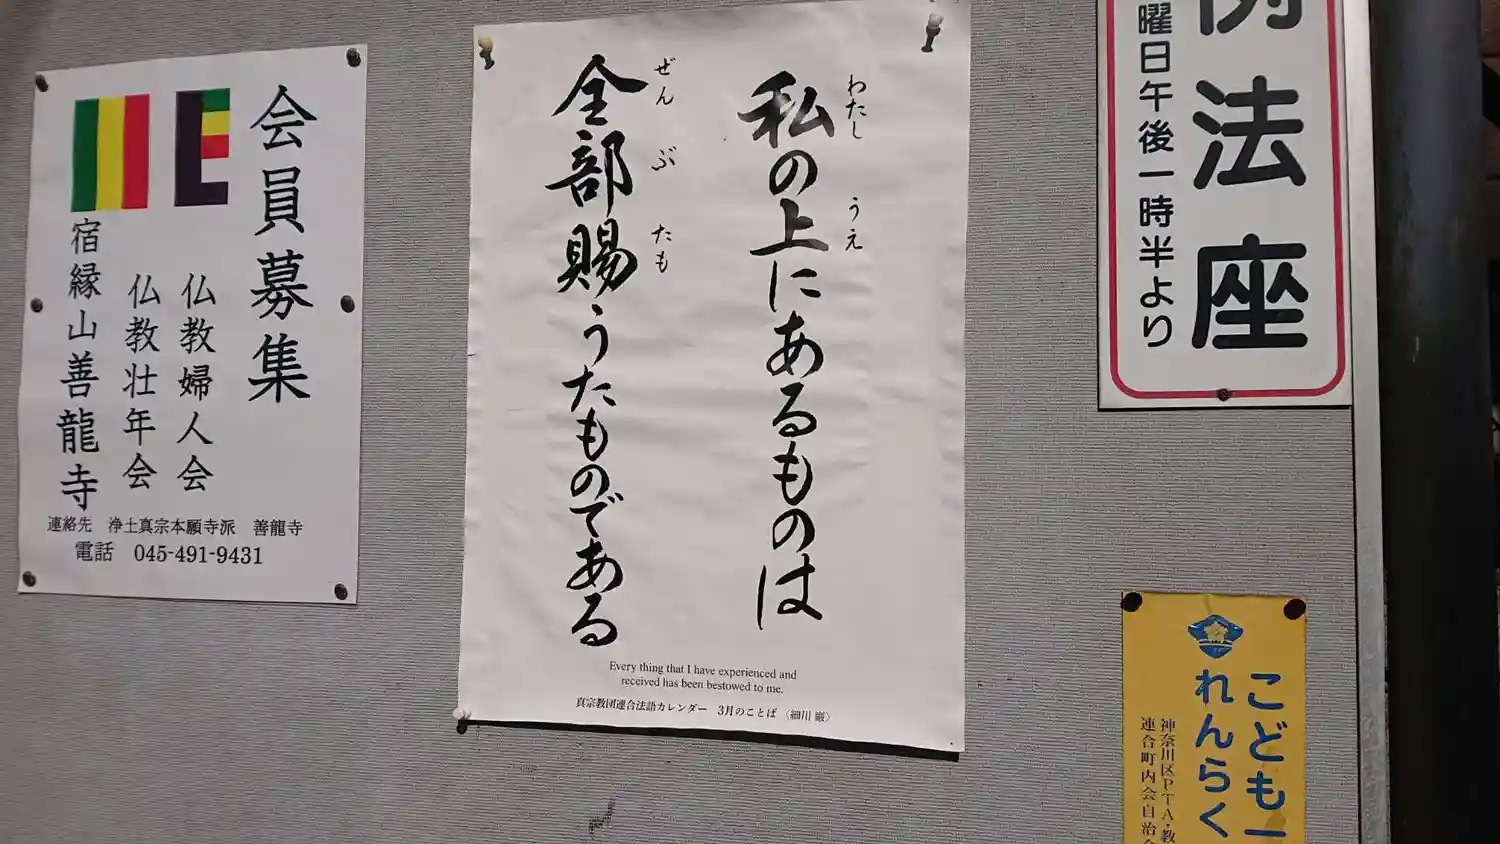 会員募集
仏教婦人会
仏教壮年会
宿縁山善龍寺
連絡先　浄土真宗本願寺派　善龍寺
電話　045-491-9431
私の上にあるものは
わたし
うえ
全部賜うたものである
ぜん
ぶ
たも
Every thing that I have experienced and
received has been bestowed to me.
真宗教団連合法語カレンダー　3月のことば　〈細川 巌〉
法座
曜日午後一時半より
こども
れんらく
神奈川区PTA・教
連合町内会自治会